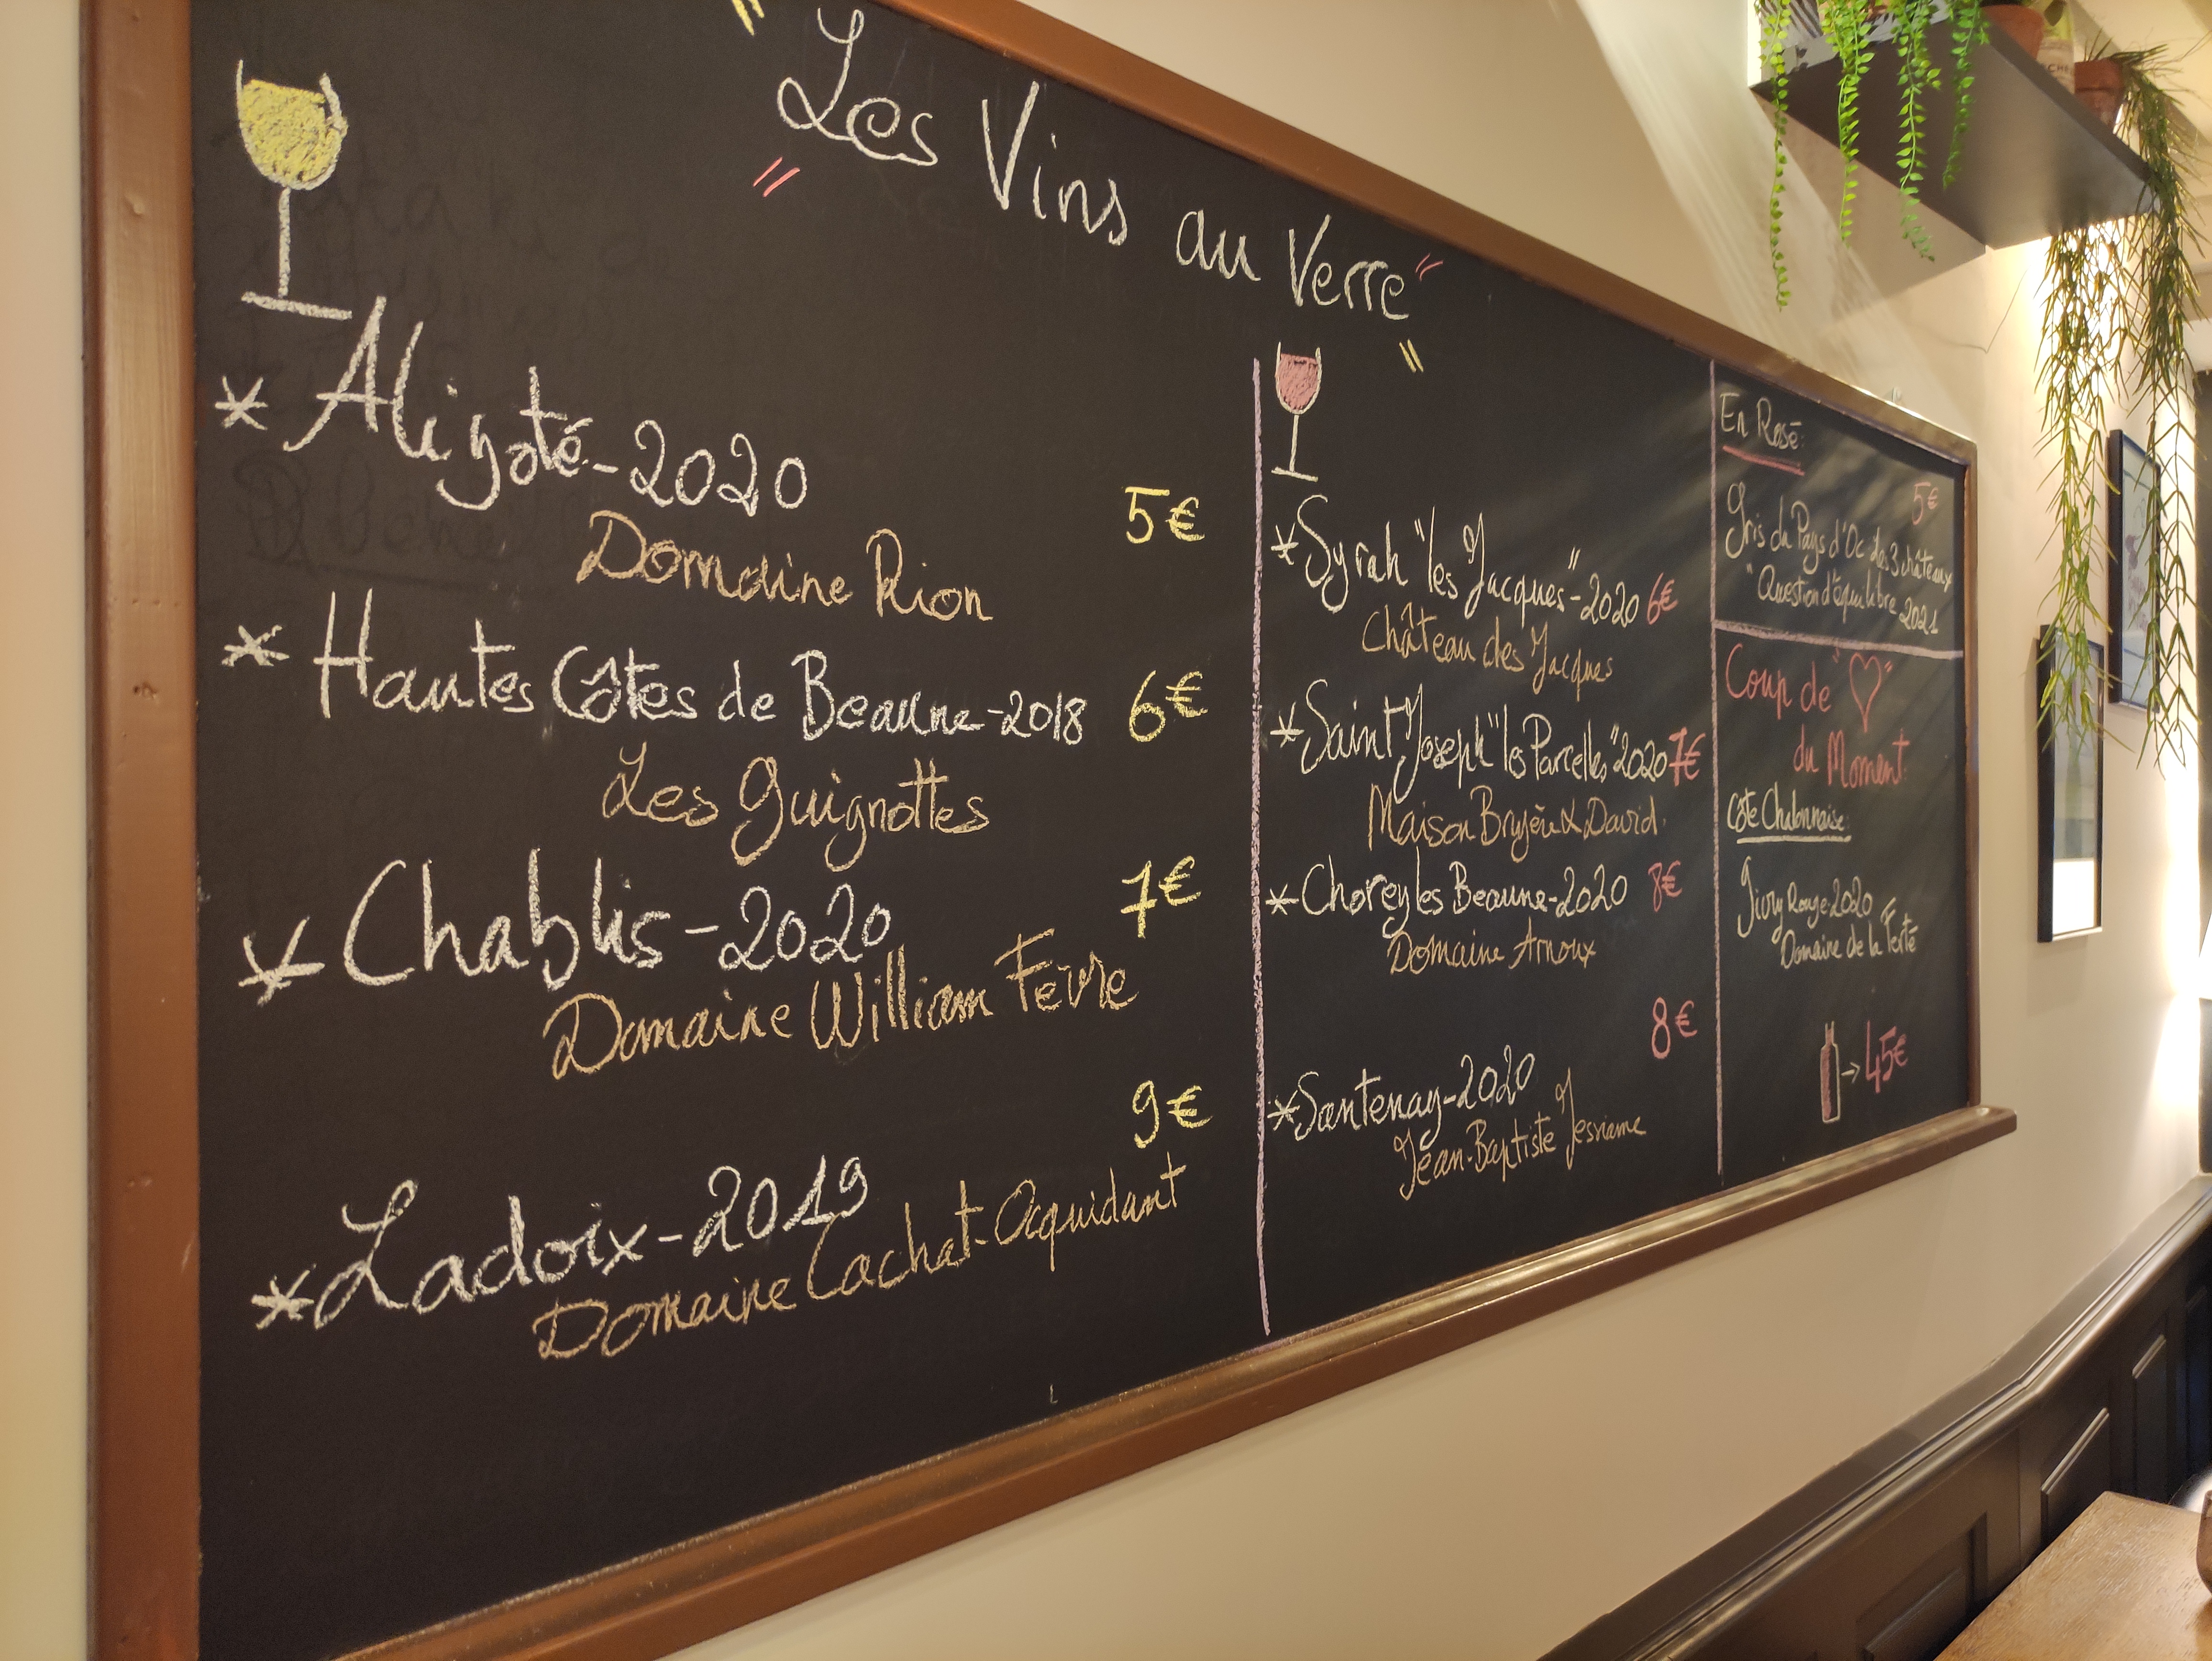 "Les Vins au Verre"
* Aligoté-2020
5€
Domaine Rion
* Hautes Côtes de Beaune-2018 6€
Les Guignottes
* Chablis-2020 7€
Domaine William Fèvre
9€
* Ladoix-2019
Domaine Cachat-Ocquidant
* Syrah "les Jacques"-2020 6€
Château des Jacques
* Saint Joseph "les Parcelles" 2020 7€
Maison & David
* Chorey les Beaune-2020 8€
Domaine Arnoux
8€
* Santenay-2020
Jean-Baptiste
En Rosé:
5€
Gris du Pays d'Oc Les 3 châteaux
"Question d'équilibre 2021
Coup de "♡"
du Moment:
Côte Chalonnaise:
Givry Rouge-2020
Domaine de la Ferté
→ 45€